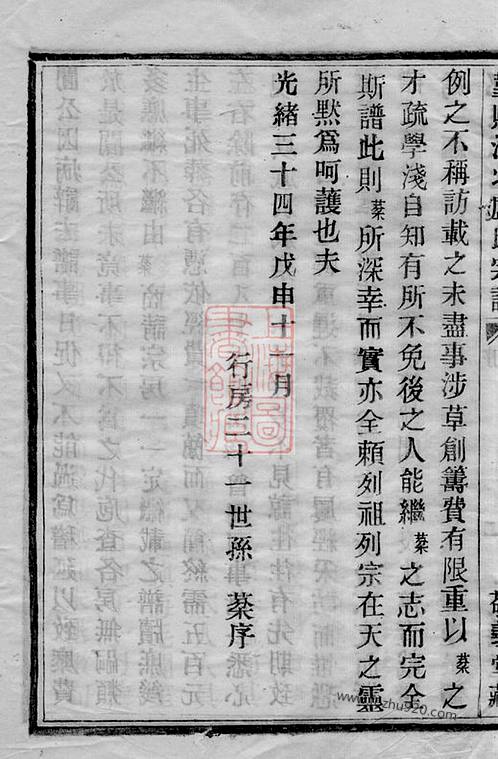 例之不稱訪載之未盡事涉草創籌費有限重以蓁之
才疏學淺自知有所不免後之人能繼蓁之志而完全
斯譜此則蓁所深幸而實亦全賴列祖列宗在天之靈
所默爲呵護也夫
光緒三十四年戊申十一月
行房三十一世孫 蓁序
上海圖書館藏